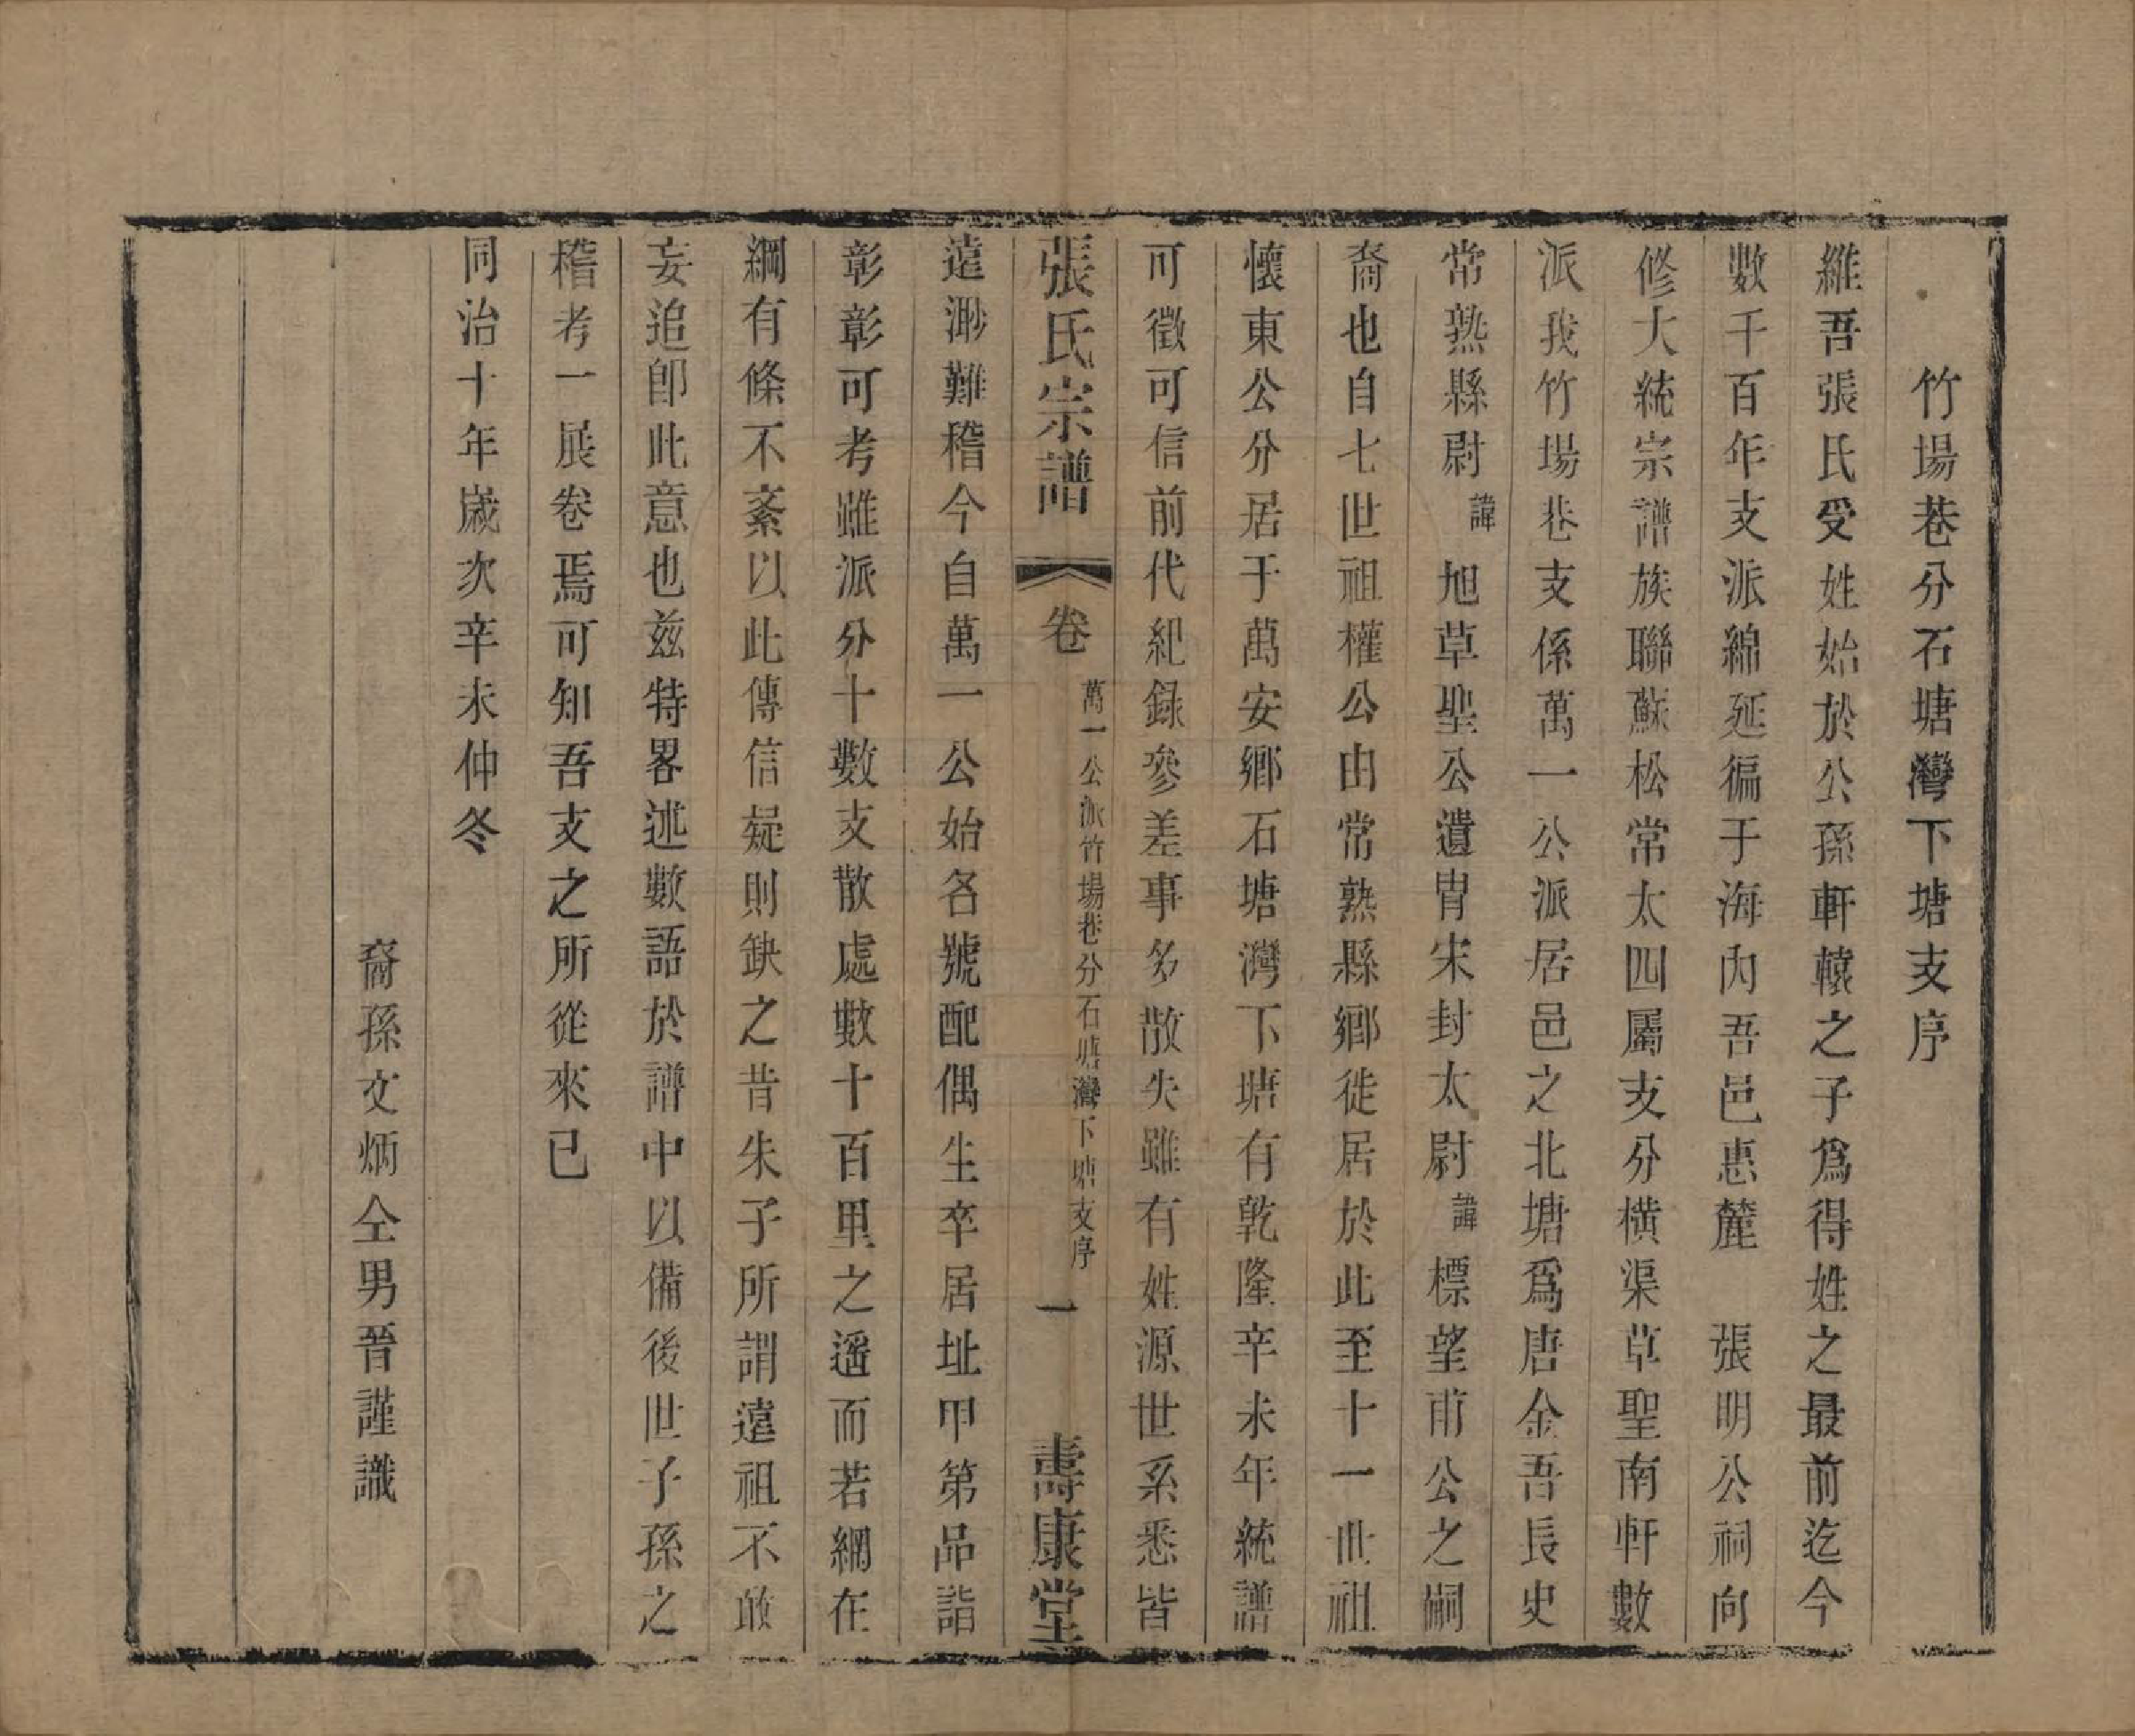 竹場巷分石塘灣下塘支序
維吾張氏受姓始於公孫軒轅之子爲得姓之最前迄今
數千百年支派綿延徧于海內吾邑惠麓　張明公祠向
修大統宗譜族聯蘇松常太四屬支分橫渠草聖南軒數
派我竹場巷支係萬一公派居邑之北塘爲唐金吾長史
常熟縣尉諱旭草聖公遺胄宋封太尉諱標望甫公之嗣
裔也自七世祖權公由常熟縣鄉徙居於此至十一世祖
懷東公分居于萬安鄉石塘灣下塘有乾隆辛未年統譜
可徵可信前代紀録參差事多散失雖有姓源世系悉皆
張氏宗譜　卷　萬一公派竹場巷分石塘灣下塘支序　一　壽康堂
遠渺難稽今自萬一公始名號配偶生卒居址甲第品詣
彰彰可考雖派分十數支散處數十百里之遥而若網在
綱有條不紊以此傳信疑則缺之昔朱子所謂遠祖不敢
妄追卽此意也兹特畧述數語於譜中以備後世子孫之
稽考一展卷焉可知吾支之所從來已
同治十年歲次辛未仲冬
裔孫文炳仝男晉謹識